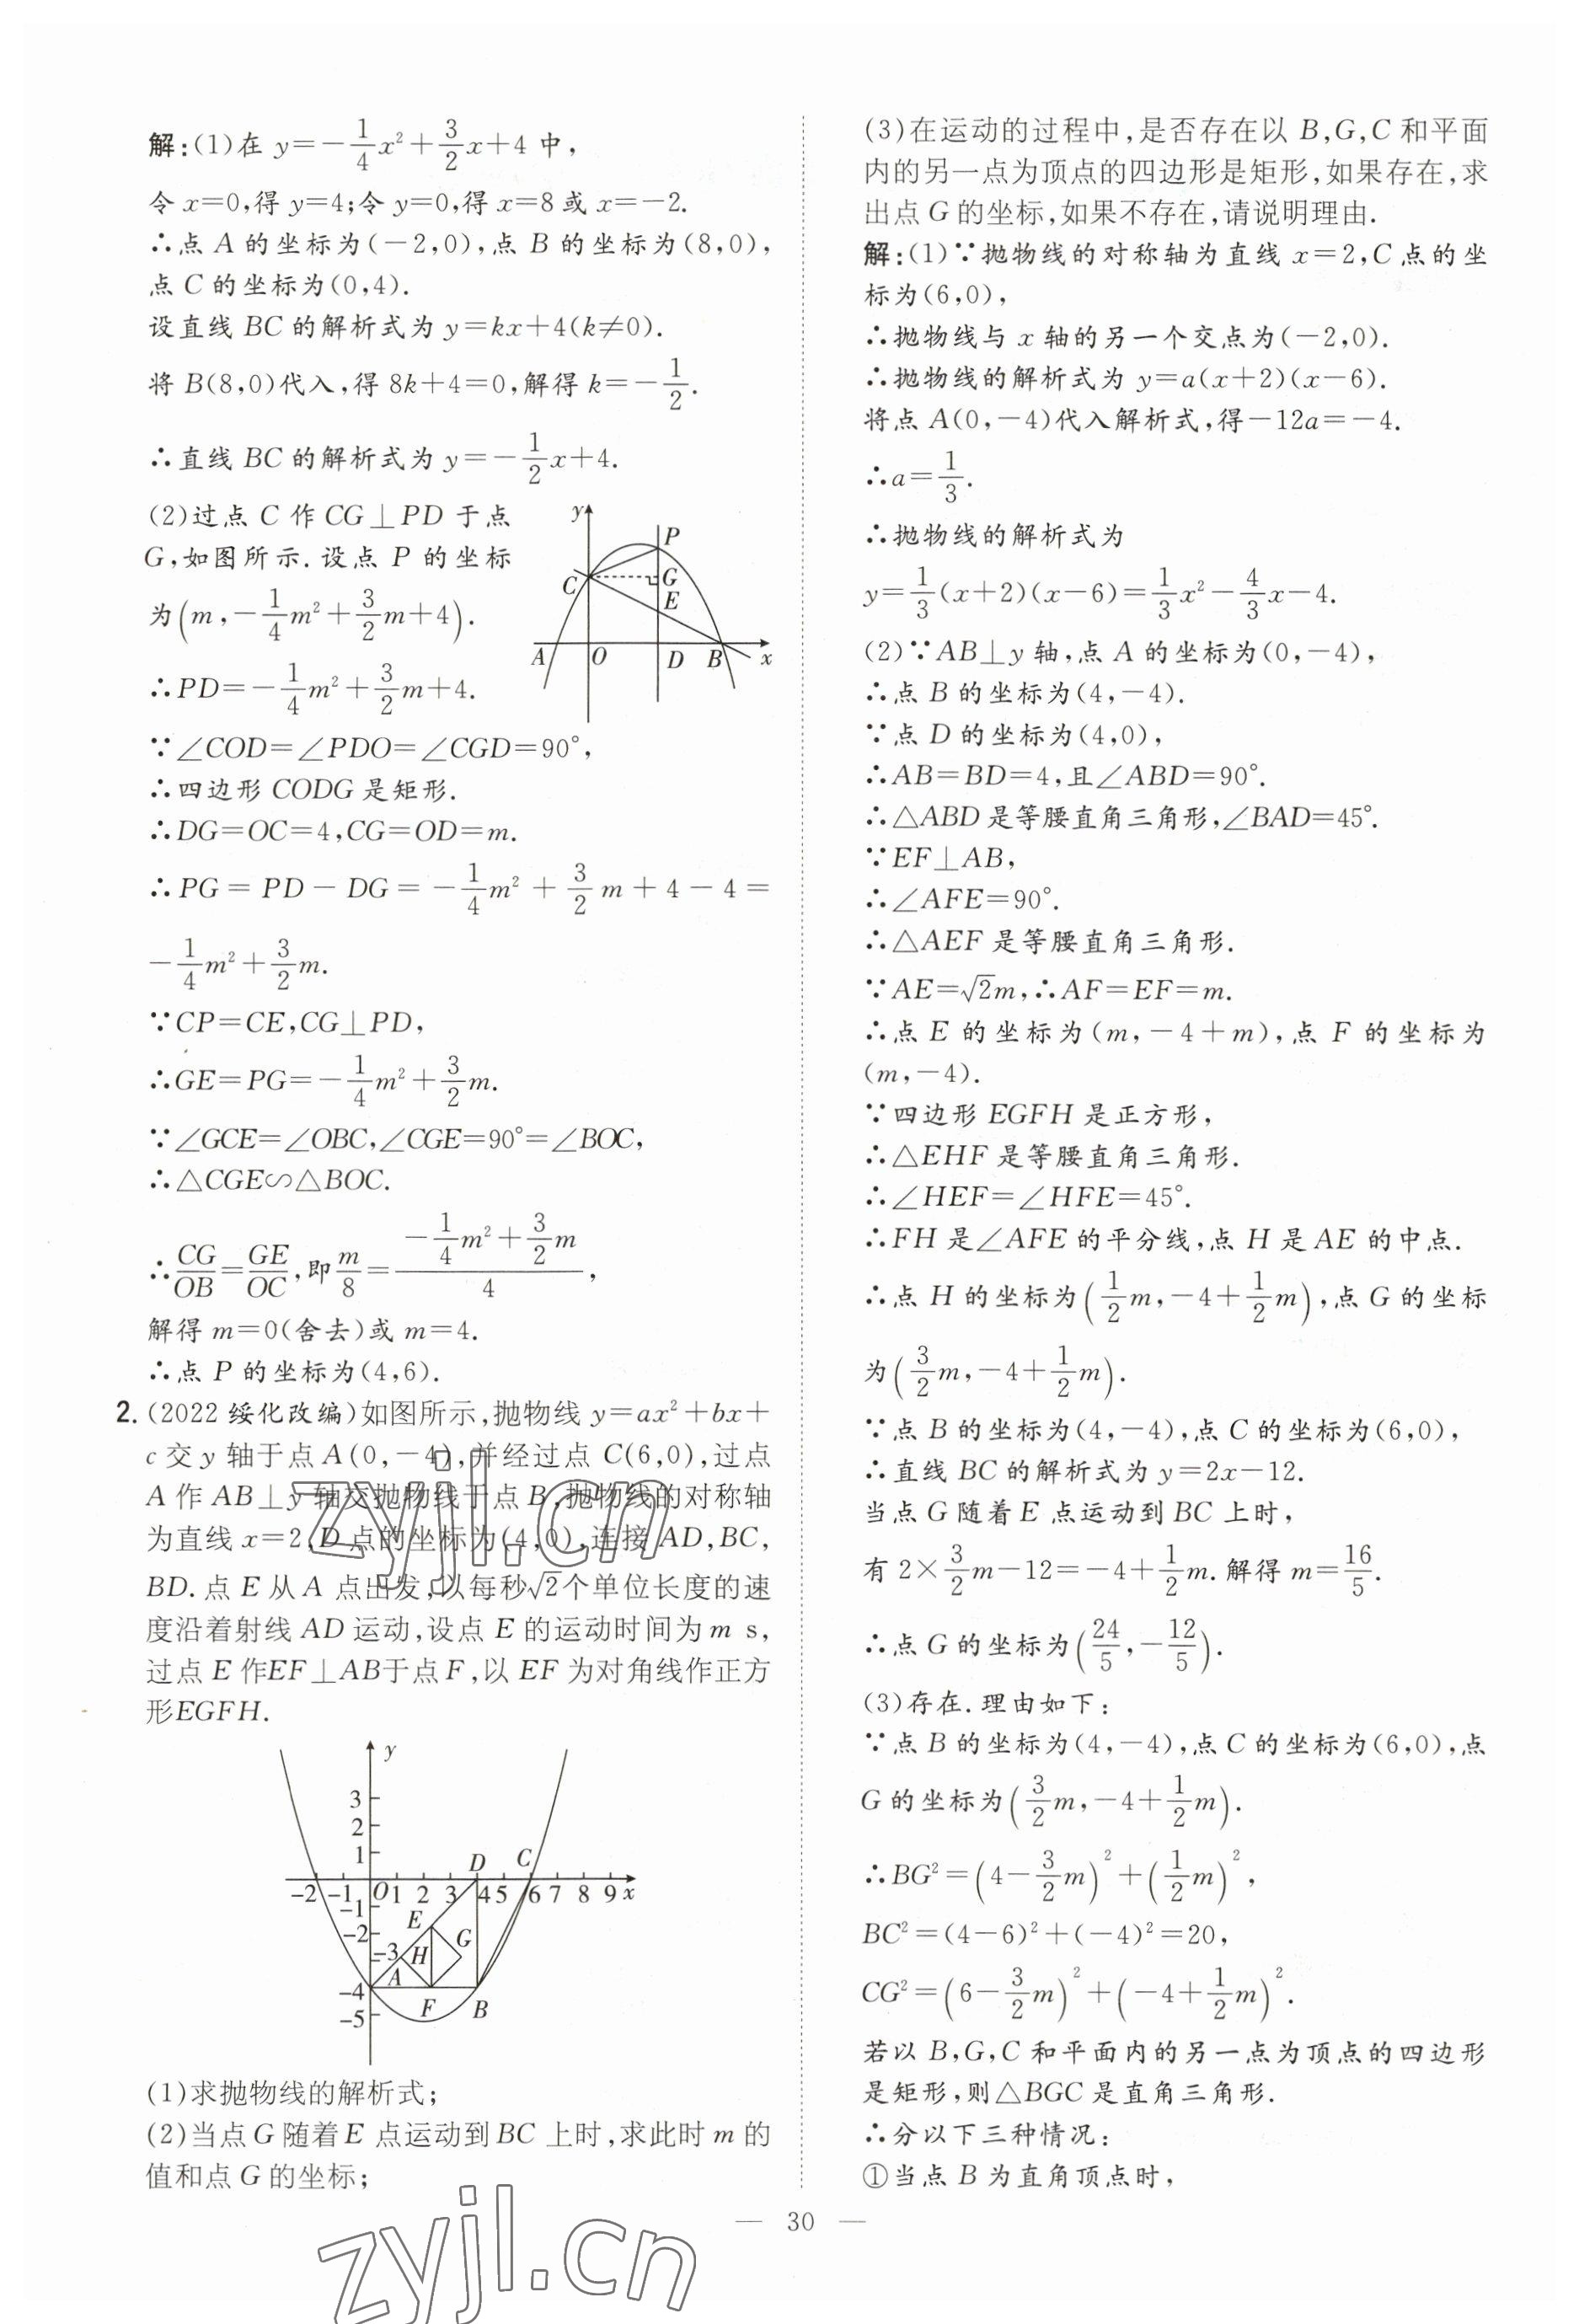 解:(1)在 y=-1/4x²+3/2x+4 中,
令 x=0,得 y=4;令 y=0,得 x=8 或 x=-2.
∴点 A 的坐标为(-2,0),点 B 的坐标为(8,0),
点 C 的坐标为(0,4).
设直线 BC 的解析式为 y=kx+4(k≠0).
将 B(8,0)代入,得 8k+4=0,解得 k=-1/2.
∴直线 BC 的解析式为 y=-1/2x+4.
(2)过点 C 作 CG⊥PD 于点
G,如图所示.设点 P 的坐标
为(m,-1/4m²+3/2m+4).
∴PD=-1/4m²+3/2m+4.
y
P
C
G
E
A O D B x
∵∠COD=∠PDO=∠CGD=90°,
∴四边形 CODG 是矩形.
∴DG=OC=4,CG=OD=m.
∴PG=PD-DG=-1/4m²+3/2m+4-4=
-1/4m²+3/2m.
∵CP=CE,CG⊥PD,
∴GE=PG=-1/4m²+3/2m.
∵∠GCE=∠OBC,∠CGE=90°=∠BOC,
∴△CGE∽△BOC.
∴CG/OB=GE/OC,即 m/8=(-1/4m²+3/2m)/4,
解得 m=0(舍去)或 m=4.
∴点 P 的坐标为(4,6).
2.(2022 绥化改编)如图所示,抛物线 y=ax²+bx+
c 交 y 轴于点 A(0,-4),并经过点 C(6,0),过点
A 作 AB⊥y 轴交抛物线于点 B,抛物线的对称轴
为直线 x=2,D 点的坐标为(4,0),连接 AD,BC,
BD.点 E 从 A 点出发,以每秒√2个单位长度的速
度沿着射线 AD 运动,设点 E 的运动时间为 m s,
过点 E 作EF⊥AB于点 F,以 EF 为对角线作正方
形EGFH.
y
3
2
1
D C
-2 -1 O 1 2 3 4 5 6 7 8 9 x
-1
E
-2
G
-3 H
A
-4
F B
-5
(1)求抛物线的解析式;
(2)当点 G 随着 E 点运动到 BC 上时,求此时 m 的
值和点 G 的坐标;
(3)在运动的过程中,是否存在以 B,G,C 和平面
内的另一点为顶点的四边形是矩形,如果存在,求
出点 G 的坐标,如果不存在,请说明理由.
解:(1)∵抛物线的对称轴为直线 x=2,C 点的坐
标为(6,0),
∴抛物线与 x 轴的另一个交点为(-2,0).
∴抛物线的解析式为 y=a(x+2)(x-6).
将点 A(0,-4)代入解析式,得-12a=-4.
∴a=1/3.
∴抛物线的解析式为
y=1/3(x+2)(x-6)=1/3x²-4/3x-4.
(2)∵AB⊥y 轴,点 A 的坐标为(0,-4),
∴点 B 的坐标为(4,-4).
∵点 D 的坐标为(4,0),
∴AB=BD=4,且∠ABD=90°.
∴△ABD 是等腰直角三角形,∠BAD=45°.
∵EF⊥AB,
∴∠AFE=90°.
∴△AEF 是等腰直角三角形.
∵AE=√2m,∴AF=EF=m.
∴点 E 的坐标为(m,-4+m),点 F 的坐标为
(m,-4).
∵四边形 EGFH 是正方形,
∴△EHF 是等腰直角三角形.
∴∠HEF=∠HFE=45°.
∴FH 是∠AFE 的平分线,点 H 是 AE 的中点.
∴点 H 的坐标为(1/2m,-4+1/2m),点 G 的坐标
为(3/2m,-4+1/2m).
∵点 B 的坐标为(4,-4),点 C 的坐标为(6,0),
∴直线 BC 的解析式为 y=2x-12.
当点 G 随着 E 点运动到 BC 上时,
有 2×3/2m-12=-4+1/2m.解得 m=16/5.
∴点 G 的坐标为(24/5,-12/5).
(3)存在.理由如下:
∵点 B 的坐标为(4,-4),点 C 的坐标为(6,0),点
G 的坐标为(3/2m,-4+1/2m).
∴BG²=(4-3/2m)²+(1/2m)²,
BC²=(4-6)²+(-4)²=20,
CG²=(6-3/2m)²+(-4+1/2m)².
若以 B,G,C 和平面内的另一点为顶点的四边形
是矩形,则△BGC 是直角三角形.
∴分以下三种情况:
①当点 B 为直角顶点时,
— 30 —
zyjl.cn
zyjl.cn